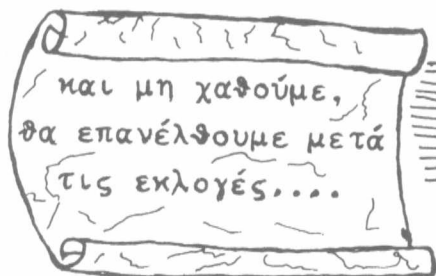 και μη χαθούμε,
θα επανέλθουμε μετά
τις εκλογές....